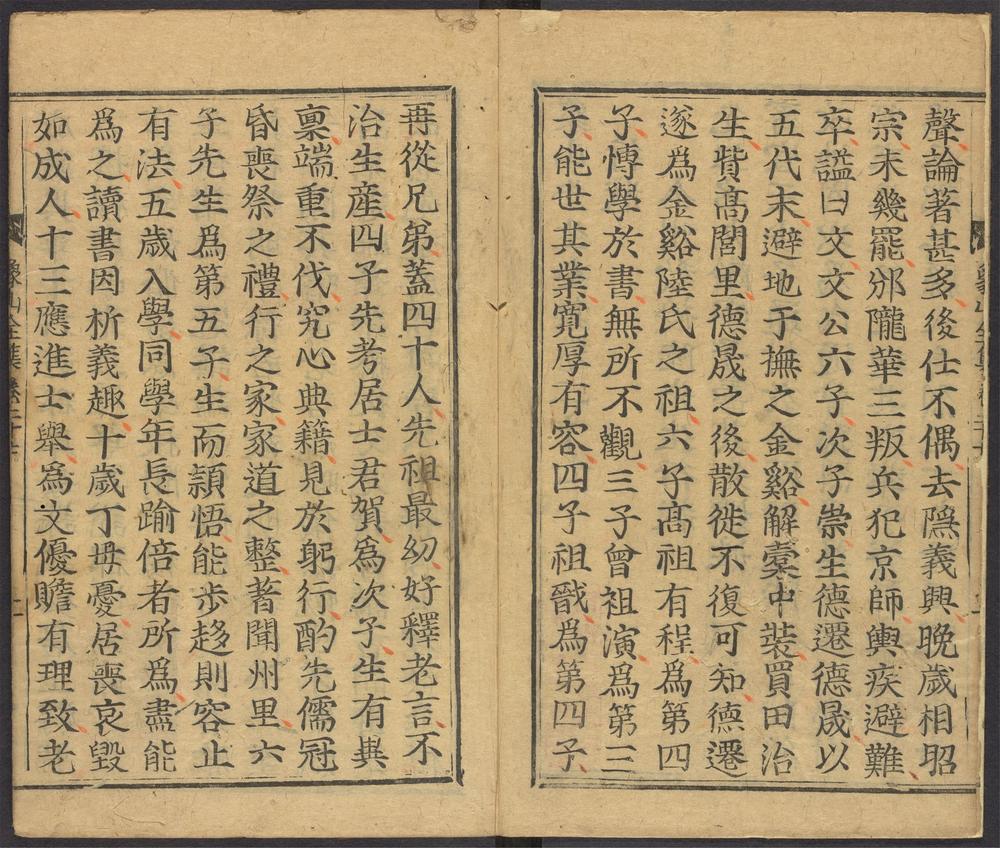 聲論著甚多後仕不偶去隱義興晚歲相昭
宗未幾罷邠隴華三叛兵犯京師輿疾避難
卒謚曰文文公六子次子崇生德遷德晟以
五代末避地于撫之金谿解槖中裝買田治
生貲高閭里德晟之後散徙不復可知德遷
遂爲金谿陸氏之祖六子高祖有程爲第四
子愽學於書無所不觀三子曾祖演爲第三
子能世其業寬厚有容四子祖戩爲第四子
再從兄弟蓋四十人先祖最幼好釋老言不
治生産四子先考居士君賀爲次子生有異
稟端重不伐究心典籍見於躬行酌先儒冠
昏喪祭之禮行之家家道之整著聞州里六
子先生爲第五子生而頴悟能步趍則容止
有法五歲入學同學年長踰倍者所爲盡能
爲之讀書因析義趣十歲丁母憂居喪哀毀
如成人十三應進士舉爲文優贍有理致老
象山全集卷二十七